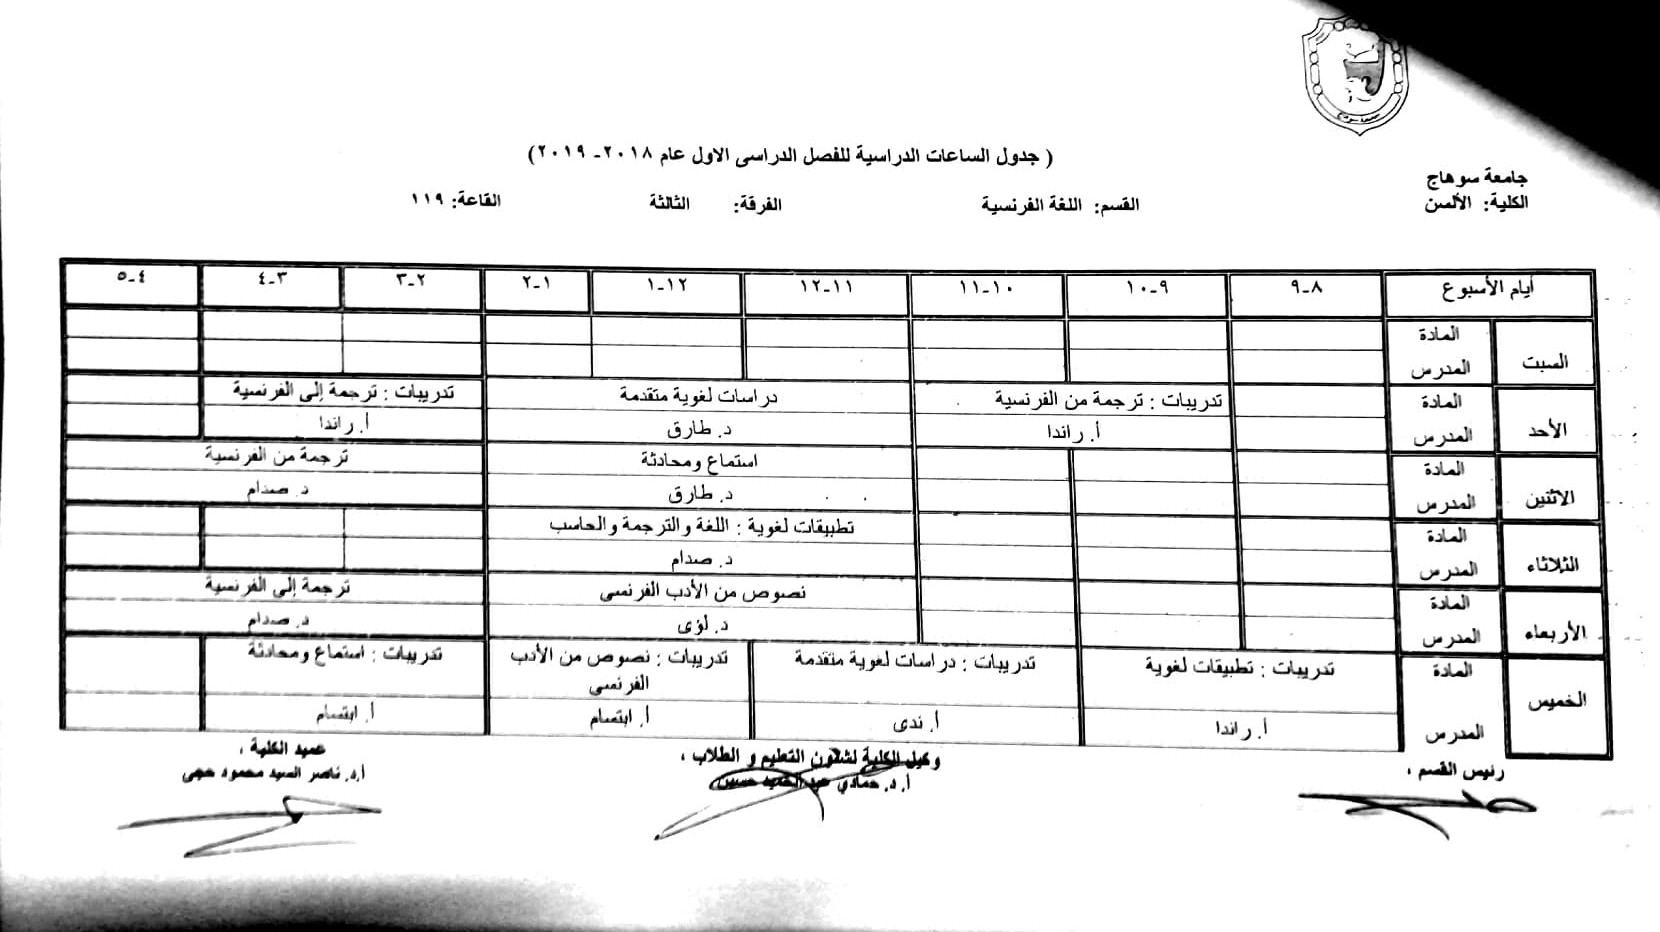 ( جدول الساعات الدراسية للفصل الدراسى الاول عام ٢٠١٨- ٢٠١٩)
جامعة سوهاج
الكلية: الألسن
القسم: اللغة الفرنسية
الفرقة: الثالثة
القاعة: ١١٩
أيام الأسبوع ٨-٩ ٩-١٠ ١٠-١١ ١١-١٢ ١٢-١ ١-٢ ٢-٣ ٣-٤ ٤-٥
السبت
المادة
المدرس
الأحد
المادة تدريبات : ترجمة من الفرنسية دراسات لغوية متقدمة تدريبات : ترجمة إلى الفرنسية
المدرس أ. راندا د. طارق أ. راندا
الاثنين
المادة استماع ومحادثة ترجمة من الفرنسية
المدرس د. طارق د. صدام
الثلاثاء
المادة تطبيقات لغوية : اللغة والترجمة والحاسب
المدرس د. صدام
الأربعاء
المادة نصوص من الأدب الفرنسى ترجمة إلى الفرنسية
المدرس د. لؤى د. صدام
الخميس
المادة تدريبات : تطبيقات لغوية تدريبات : دراسات لغوية متقدمة تدريبات : نصوص من الأدب الفرنسى تدريبات : استماع ومحادثة
المدرس أ. راندا أ. ندى أ. ابتسام أ. ابتسام
رئيس القسم ،
وكيل الكلية لشئون التعليم و الطلاب ،
أ. د. حمادي عبد الحميد حسين
عميد الكلية ،
أ.د. ناصر السيد محمود حجى